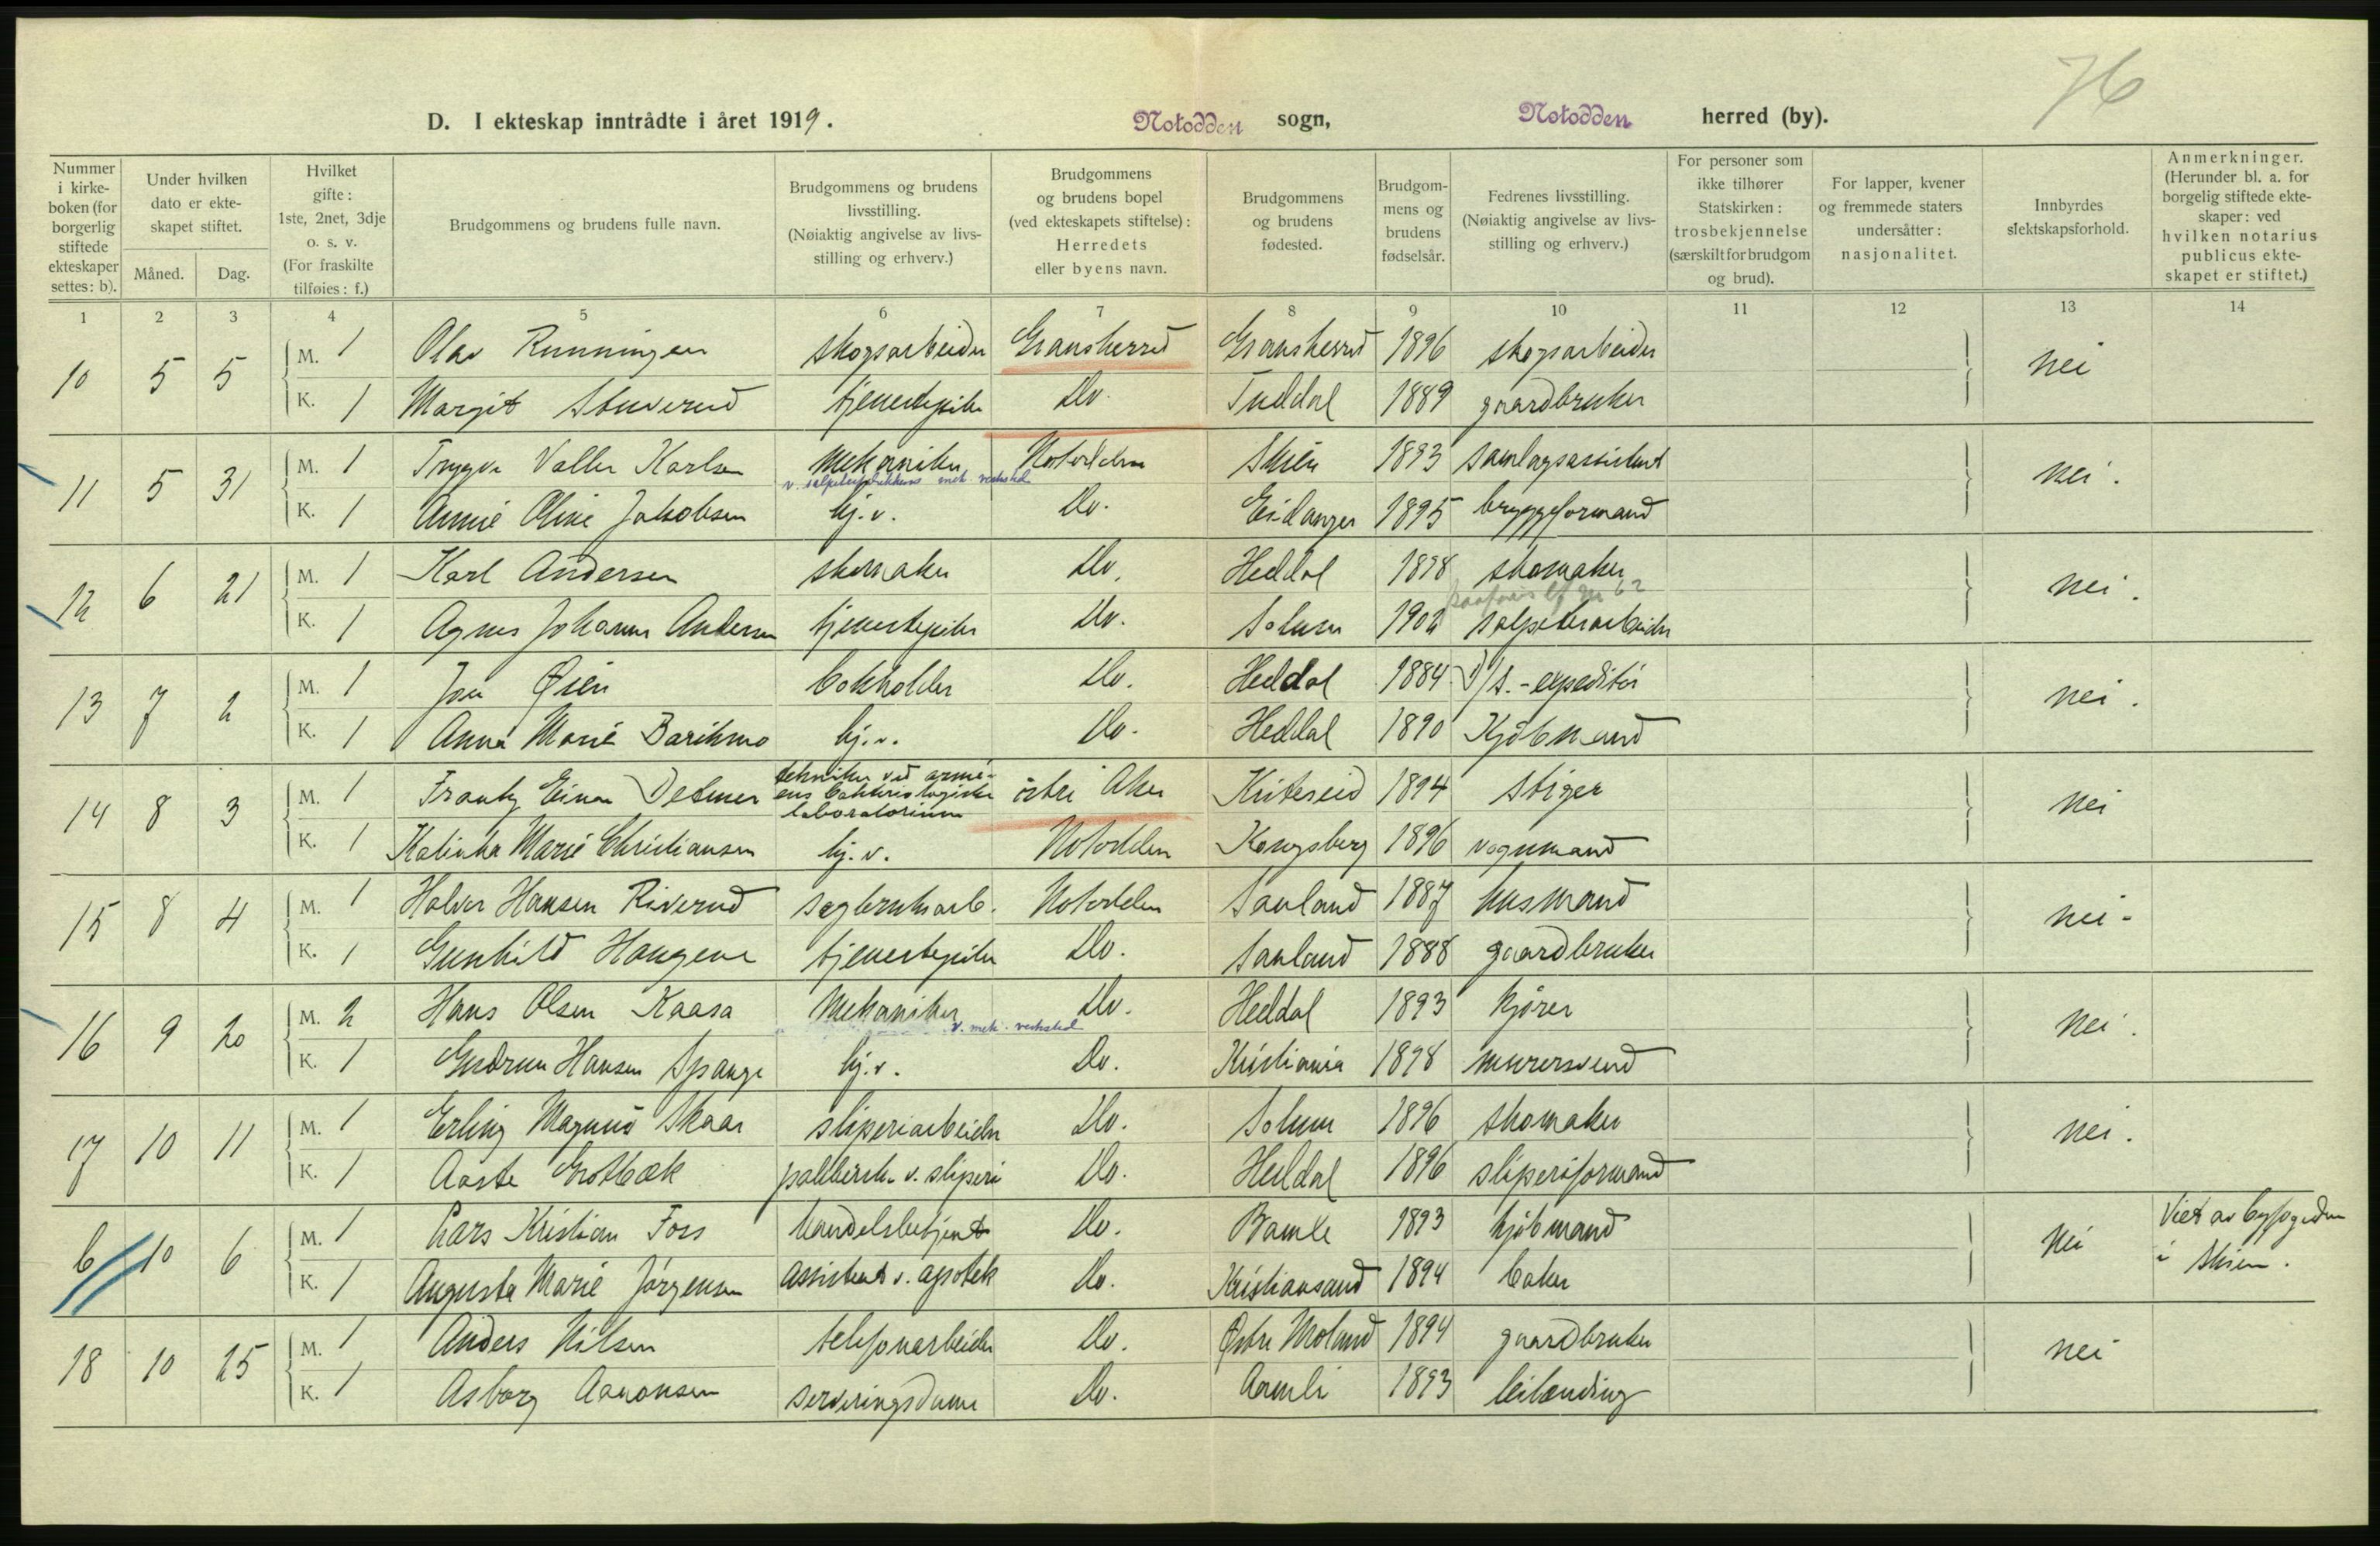 76
D. I ekteskap inntrådte i året 1919. Notodden sogn, Notodden herred (by).
Nummer i kirkeboken (for borgerlig stiftede ekteskaper settes: b).
Under hvilken dato er ekteskapet stiftet.
Måned. Dag.
Hvilket gifte: 1ste, 2net, 3dje o. s. v. (For fraskilte tilføies: f.)
Brudgommens og brudens fulle navn.
Brudgommens og brudens livsstilling. (Nøiaktig angivelse av livsstilling og erhverv.)
Brudgommens og brudens bopel (ved ekteskapets stiftelse): Herredets eller byens navn.
Brudgommens og brudens fødested.
Brudgommens og brudens fødselsår.
Fedrenes livsstilling. (Nøiaktig angivelse av livsstilling og erhverv.)
For personer som ikke tilhører Statskirken: trosbekjennelse (særskilt for brudgom og brud).
For lapper, kvener og fremmede staters undersåtter: nasjonalitet.
Innbyrdes slektskapsforhold.
Anmerkninger. (Herunder bl. a. for borgelig stiftede ekteskaper: ved hvilken notarius publicus ekteskapet er stiftet.)
1 2 3 4 5 6 7 8 9 10 11 12 13 14
10 5 5 M. 1 Olav Runningen skogsarbeider Gransherred Gransherred 1896 skogsarbeider nei
K. 1 Margit Stuverud tjenestepike Do. Tuddal 1889 gaardbruker
11 5 31 M. 1 Trygve Valler Karlsen mekaniker Notodden Skien 1893 samlagsassistent nei.
v. salpeterfabrikkens mek. verksted
K. 1 Annie Oline Jakobsen hj. v. Do. Eidanger 1895 bryggeformand
12 6 21 M. 1 Karl Andersen skomaker Do. Heddal 1898 skomaker nei.
K. 1 Agnes Johanne Andersen tjenestepike Do. Solum 1902 salpeterarbeider
13 7 2 M. 1 Jon Øien bokholder Do. Heddal 1884 D/S.-expeditør nei.
K. 1 Anna Marie Barikmo hj. v. Do. Heddal 1890 Kjøbmand
14 8 3 M. 1 Frantz Einar Detmer tekniker ved arméens bakteriologiske laboratorium östre Aker Kviteseid 1894 stiger nei
K. 1 Katinka Marie Christiansen hj. v. Notodden Kongsberg 1896 vognmand
15 8 4 M. 1 Halvor Hansen Riverud sagbruksarb. Notodden Sauland 1887 husmand nei-
K. 1 Gunhild Haugene tjenestepike Do. Sauland 1888 gaardbruker
16 9 20 M. 2 Hans Olsen Kaasa Mekaniker Do. Heddal 1893 kjører nei.
v. mek. verksted
K. 1 Gudrun Hansen Spange hj. v. Do. Kristiania 1898 murersvend
17 10 11 M. 1 Erling Magnus Skaar sliperiarbeider Do. Solum 1896 skomaker nei.
K. 1 Aaste Grotbæk v. sliperi Do. Heddal 1896 sliperiformand
b 10 6 M. 1 Lars Kristian Foss handelsbetjent Do. Bamle 1893 kjøbmand nei Viet av byfogden
K. 1 Augusta Marie Jörgensen assistent v. apotek Do. Kristiansand 1894 baker i Skien.
18 10 25 M. 1 Anders Nilsen telefonarbeider Do. Østre Moland 1894 gaardbruker nei
K. 1 Asborg Aanonsen serveringsdame Do. Aamli 1893 leilending